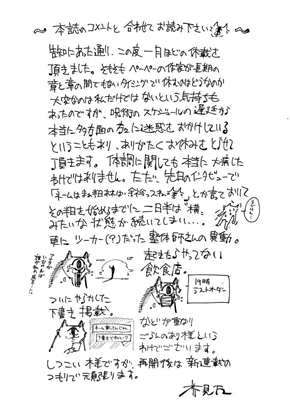 〜本誌のコメントと合わせてお読み下さい〜
告知にあった通り、この度一月ほどの休載を
頂きました。そもそもペーペーの作家が長期の
章と章の間でもないタイミングで休むのはどうなのか
大丈夫なのは私だけではないという気持ちも
あったのですが、呪術のスケジュールの遅さから
本当に多方面の方に迷惑をおかけしている
ということもあり、ありがたくお休みをとらせて
頂きます。体調に関しても本当に大病した
わけではありません。ただ、先日のインタビューで
とか言ておいて
その粗を始めるまでに二日半は
みたいな状態が続いてしまい…。
更にツーカー(?)だった整体師さんの異動。
起きたらやってない
飲食店。
19時
ラストオーダー
ついにやらかした
下書き掲載。
などが重なり
ごらんのあり様という
わけでございます。
しつこい様ですが、再開後は新連載の
つもりで頑張ります。